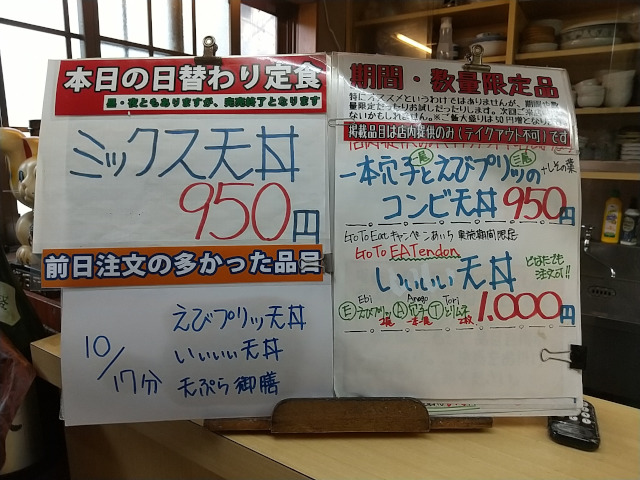 本日の日替わり定食
昼・夜ともありますが、完売終了となります
ミックス天丼
950円
前日注文の多かった品目
10/17分
えびプリッ天丼
いいいい天丼
天ぷら御膳
期間・数量限定品
特にオススメというわけではありませんが、期間や数
量限定だったりお試しだったりします。次回ご来
ないかもしれません。※ご飯大盛りは50円増とな
掲載品目は店内提供のみ（テイクアウト不可）です
一尾 三尾
一本穴子とえびプリッの +しその葉
コンビ天丼 950円
GoToEatキャンペーンあいち実施期間限定
GoTo EATendon
いいいい天丼 どなたでも
注文可!!
Ebi Anago Tori
Ⓔえびプリッ Ⓐ穴子 Ⓣとりムネ 1.000円
二尾 一本 二枚